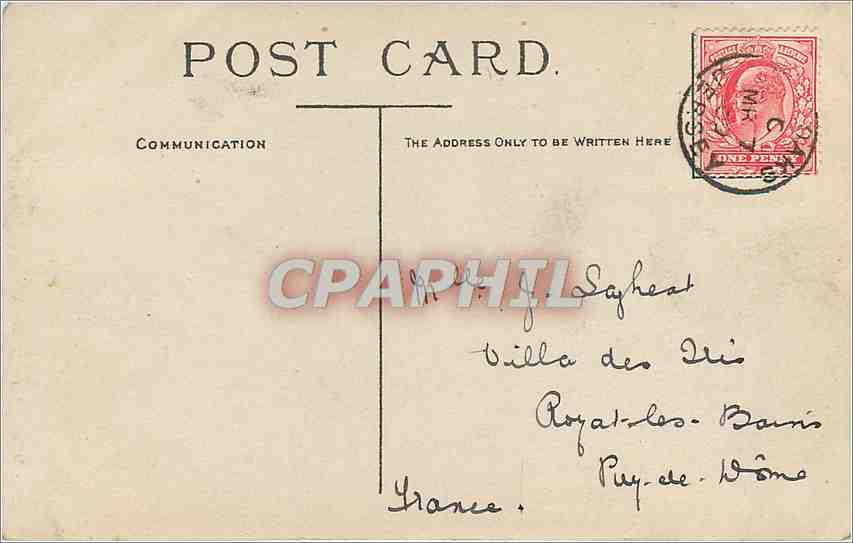 POST CARD.
COMMUNICATION
THE ADDRESS ONLY TO BE WRITTEN HERE
ONE PENNY
OAKS
MR 7
CPAPHIL
Mlle. J.
Villa des Iris
Royat-les-Bains
Puy-de-Dôme
France.